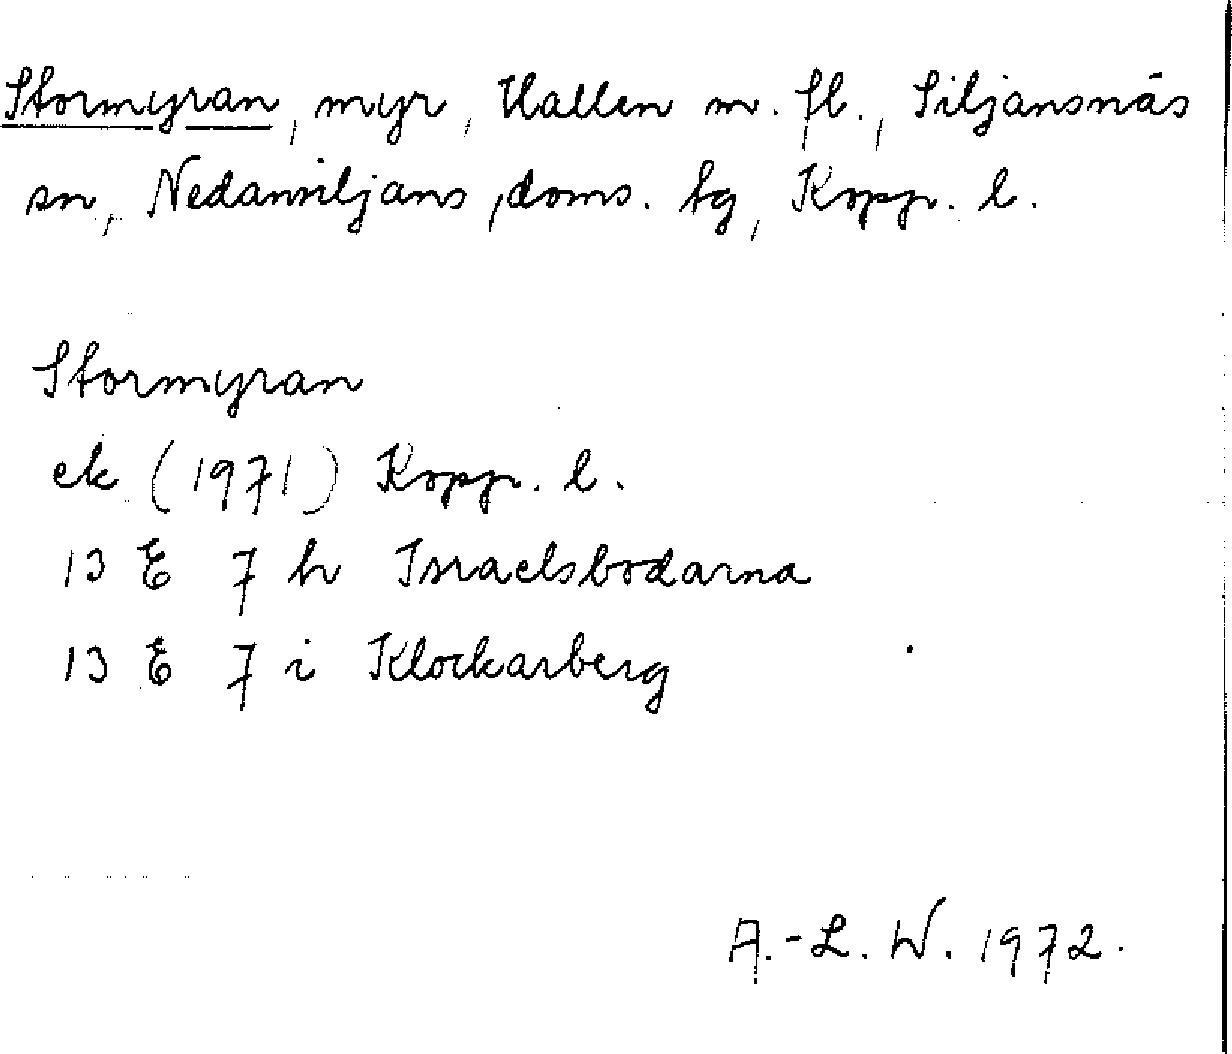 Stormyran, myr, Hallen m. fl., Siljansnäs
sn, Nedansiljans doms. tg, Kopp. l.
Stormyran
ek (1971) Kopp. l.
13 E 7 h Israelsbodarna
13 E 7 i Klockarberg
A.-L. W. 1972.